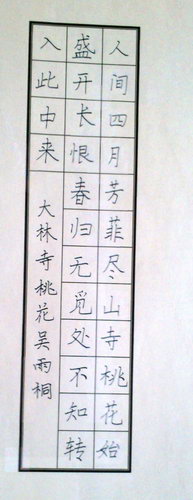 人间四月芳菲尽山寺桃花始
盛开长恨春归无觅处不知转
入此中来
大林寺桃花吴雨桐